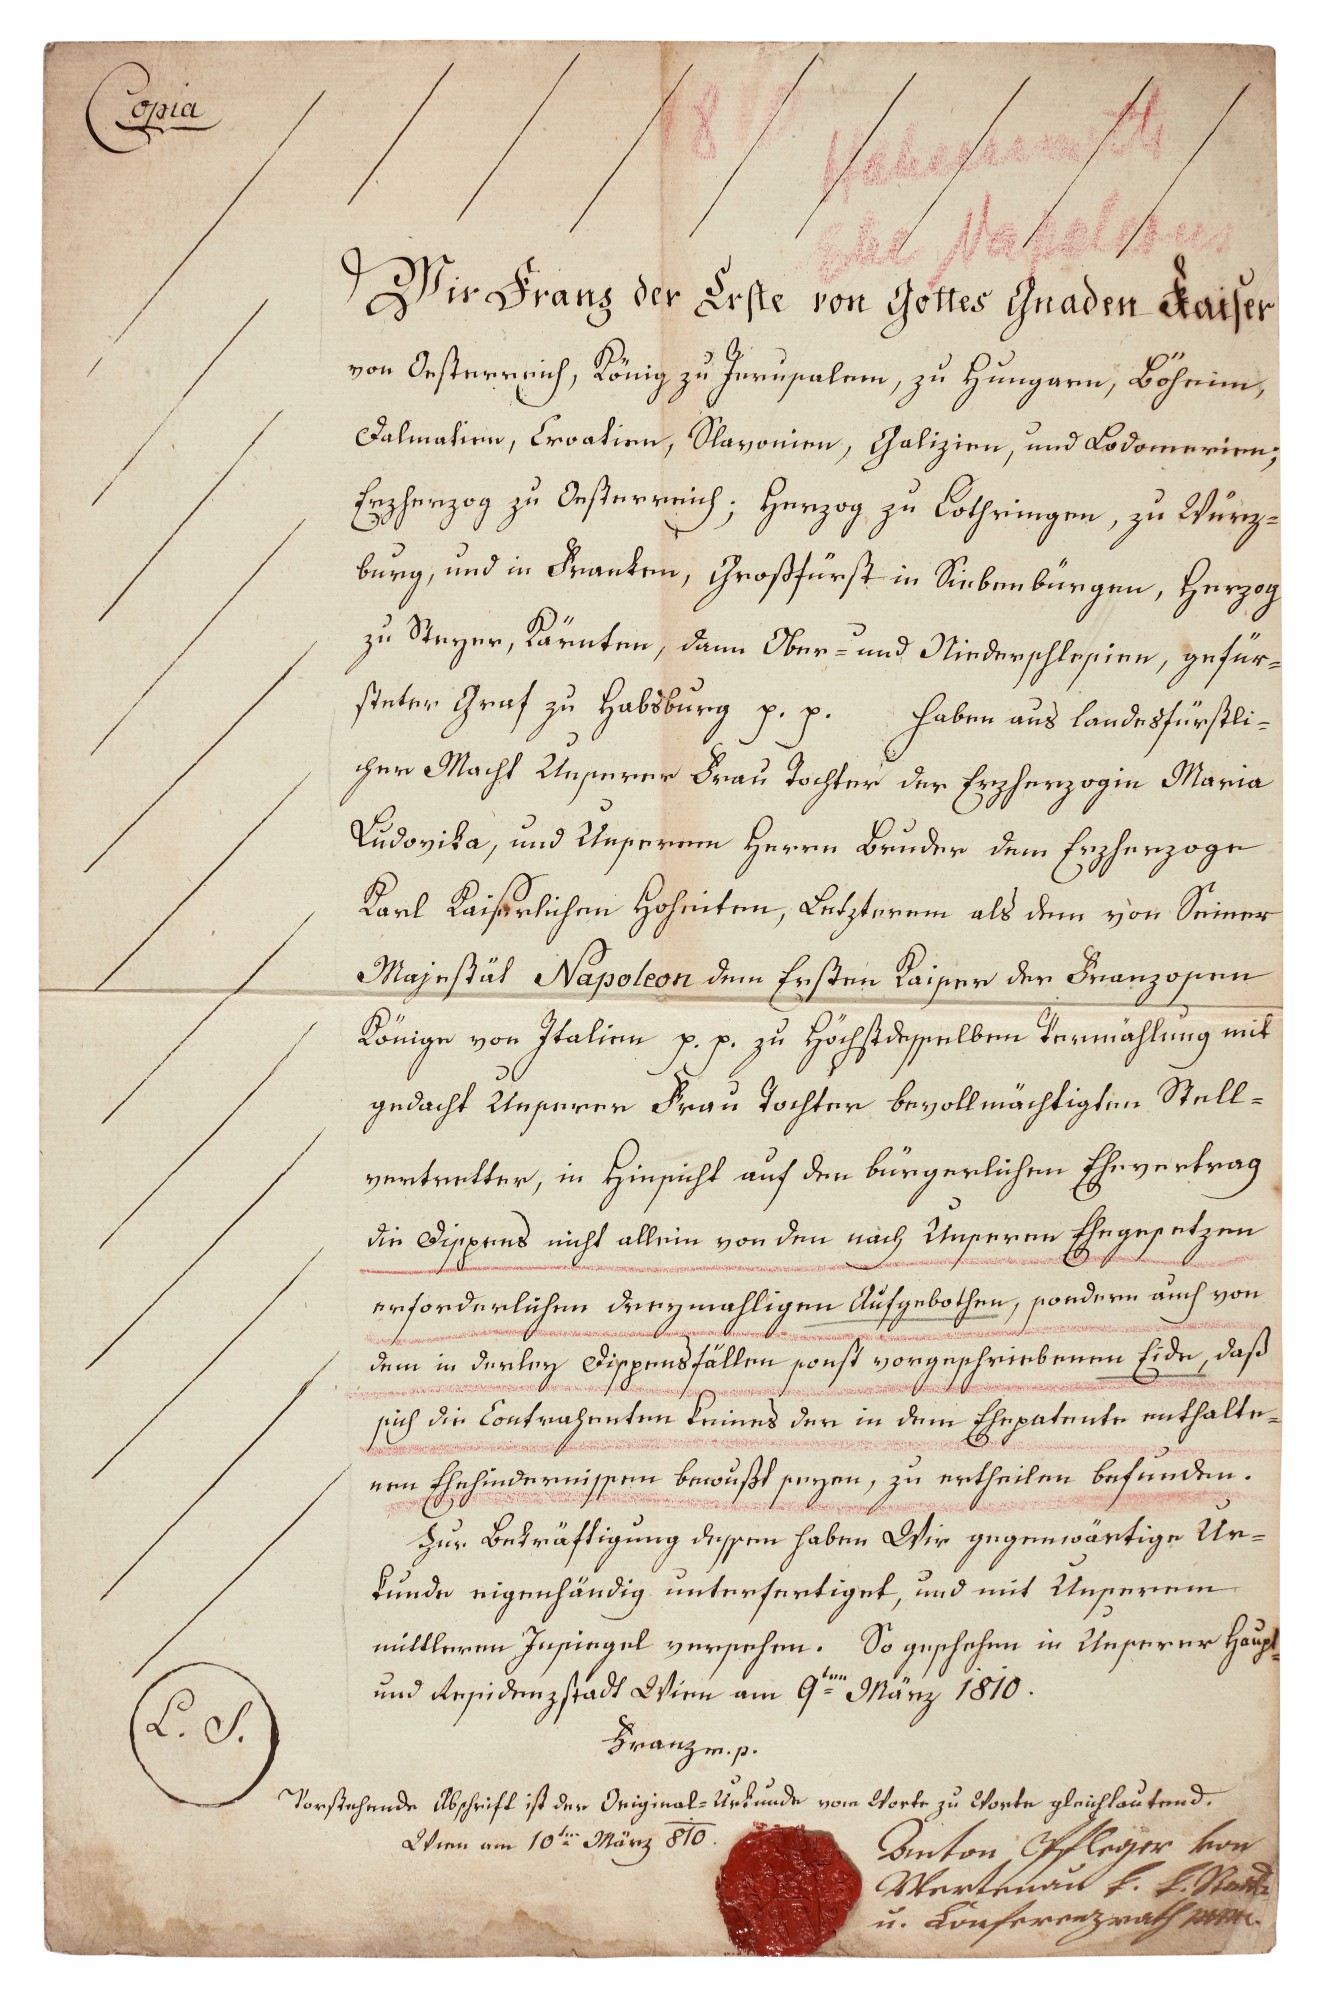 Copia
1810
Ehe Napoleons
Wir Franz der Erste von Gottes Gnaden Kaiser
von Oesterreich, König zu Jerusalem, zu Hungarn, Böheim,
Dalmatien, Croatien, Slavonien, Galizien, und Lodomerien;
Erzherzog zu Oesterreich; Herzog zu Lothringen, zu Würz=
burg, und in Franken, Großfürst in Siebenbürgen, Herzog
zu Steyer, Kärnten, dann Ober= und Niederschlesien, gefür=
steter Graf zu Habsburg p. p. haben aus landesfürstli=
cher Macht Unserer Frau Tochter der Erzherzogin Maria
Ludovika, und Unserem Herrn Bruder dem Erzherzoge
Karl Kaiserlichen Hoheiten, Letzterem als dem von Seiner
Majestät Napoleon dem Ersten Kaiser der Franzosen
Könige von Italien p. p. zu Höchstdesselben Vermählung mit
gedacht Unserer Frau Tochter bevollmächtigten Stell=
vertretter, in Hinsicht auf den bürgerlichen Ehevertrag
die Dispens nicht allein von den nach Unseren Ehegesetzen
erforderlichen dreymahligen Aufgebothen, sondern auch von
dem in derley Dispensfällen sonst vorgeschriebenen Eide, daß
sich die Contrahenten keines der in dem Ehepatente enthalte=
nen Ehehindernissen bewußt seyen, zu ertheilen befunden.
Zur Bekräftigung dessen haben Wir gegenwärtige Ur=
kunde eigenhändig unterfertiget, und mit Unserem
mittleren Insiegel versehen. So geschehen in Unserer Haupt=
und Residenzstadt Wien am 9ten März 1810.
Franz m. p.
L. S.
Vorstehende Abschrift ist der Original=Urkunde vom Worte zu Worte gleichlautend.
Wien am 10ten März 810.
Anton Pfleger von
Wertenau k. k. Staats
u. Konferenzrath